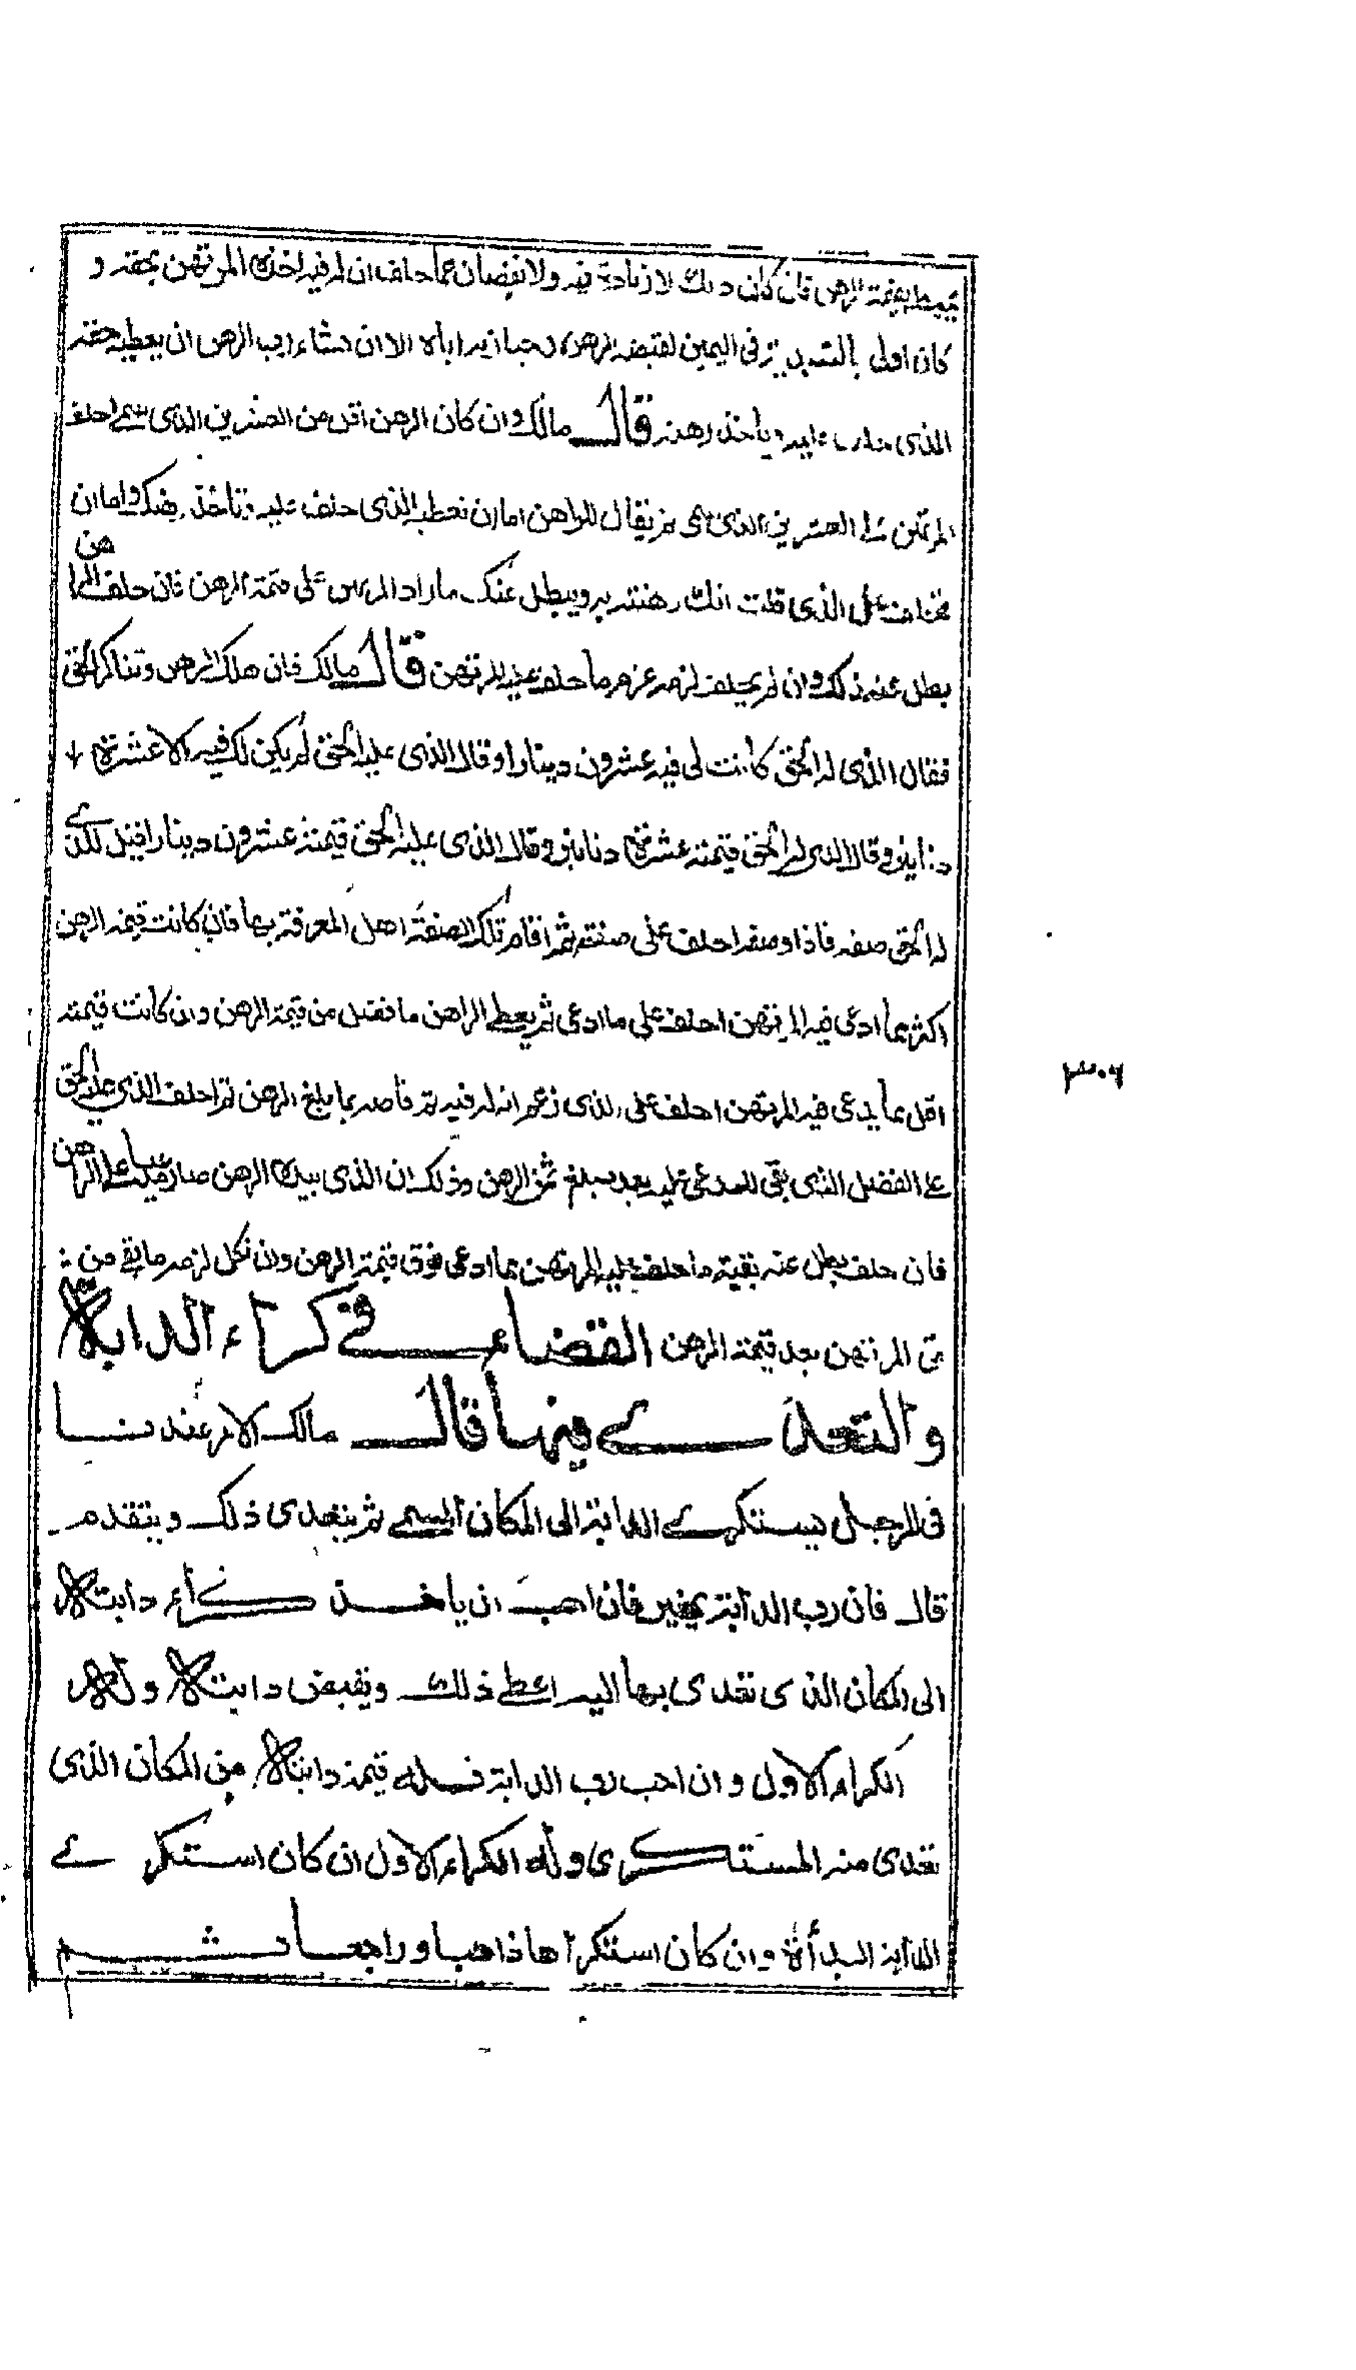 يحيط بقيمة الرهن فان كان ذلك لا زيادة فيه ولا نقصان عما حلف ان له فيه اخذه المرتهن بحقه و
كان اولى بالتبدية في اليمين لقبضه الرهن وحيازته اياه الا ان يشاء رب الرهن ان يعطيه حقه
الذي حلف عليه وياخذ رهنه قال مالك وان كان الرهن اقل من العشرين الذي سمى احلف
المرتهن على العشرين الذي سمى ثم يقال للراهن اما ان تعطيه الذي حلف عليه وتاخذ رهنك واما ان
تحلف على الذي قلت انك رهنته به ويبطل عنك ما زاد المرتهن على قيمة الرهن فان حلف الراهن
بطل عنه ذلك وان لم يحلف لزمه غرم ما حلف عليه المرتهن قال مالك فان هلك الرهن وتناكرا الحق
فقال الذي له الحق كانت لي فيه عشرون دينارا وقال الذي عليه الحق لم يكن لك فيه الا عشرة
دنانير وقال الذي له الحق قيمته عشرة دنانير وقال الذي عليه الحق قيمته عشرون دينارا قيل للذي
له الحق صفه فاذا وصفه احلف على صفته ثم اقام تلك الصفة اهل المعرفة بها فان كانت قيمة الرهن
اكثر مما ادعى فيه المرتهن احلف على ما ادعى ثم يعطى الراهن ما فضل من قيمة الرهن وان كانت قيمته
اقل مما يدعى فيه المرتهن احلف على الذي زعم انه له فيه ثم قاصه بما بلغ الرهن ثم احلف الذي عليه الحق
على الفضل الذي بقى للمدعى عليه بعد مبلغ ثمن الرهن وذلك ان الذي بيده الرهن صار مدعيا على الراهن
فان حلف بطل عنه بقية ما حلف عليه المرتهن مما ادعى فوق قيمة الرهن وان نكل لزمه ما بقي من
حق المرتهن بعد قيمة الرهن القضاء في كراء الدابة
والتعدي فيها قال مالك الامر عندنا
في الرجل يستكري الدابة الى المكان المسمى ثم يتعدى ذلك ويتقدم
قال فان رب الدابة يخير فان احب ان ياخذ كراء دابته
الى المكان الذي تعدى بها اليه اعطى ذلك ويقبض دابته وله
الكراء الاول وان احب رب الدابة فله قيمة دابته من المكان الذي
تعدى منه المستكرى وله الكراء الاول ان كان استكرى
الدابة البدأة وان كان استكراها ذاهبا وراجعا ثم
٣٠٦